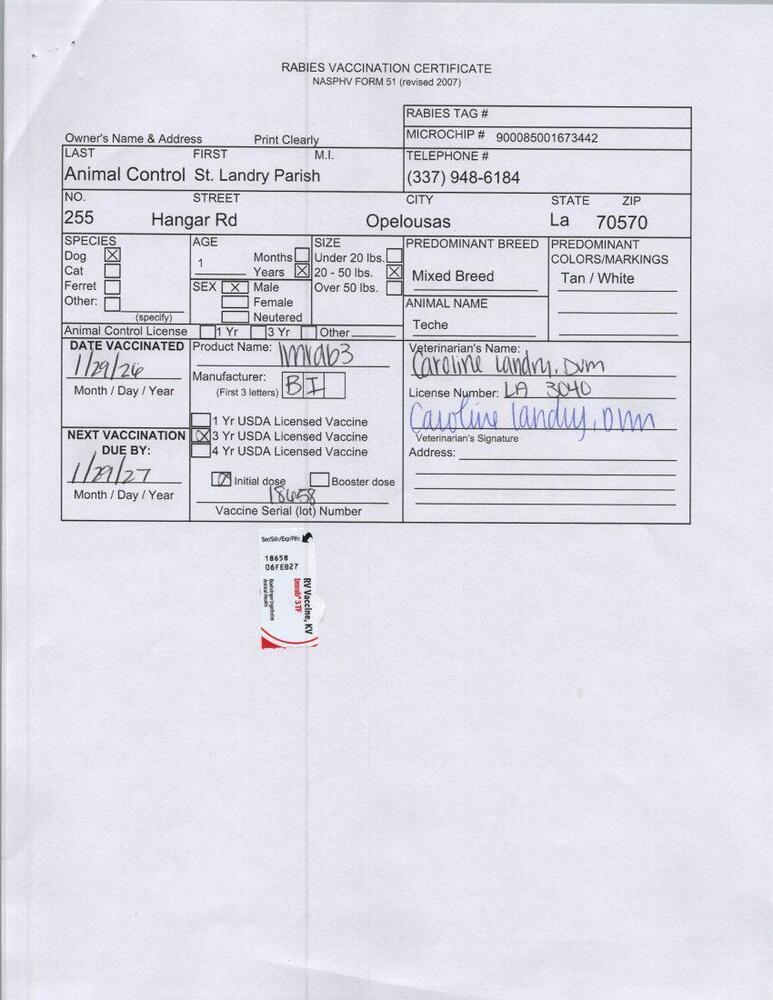 RABIES VACCINATION CERTIFICATE
NASPHV FORM 51 (revised 2007)
RABIES TAG #
Owner's Name & Address Print Clearly
MICROCHIP # 900085001673442
LAST FIRST M.I.
TELEPHONE #
Animal Control St. Landry Parish
(337) 948-6184
NO. STREET CITY STATE ZIP
255 Hangar Rd Opelousas La 70570
SPECIES AGE SIZE PREDOMINANT BREED PREDOMINANT COLORS/MARKINGS
Dog X 1 Months Under 20 lbs.
Cat Years X 20 - 50 lbs. X Mixed Breed Tan / White
Ferret SEX X Male Over 50 lbs.
Other: Female ANIMAL NAME
(specify) Neutered Teche
Animal Control License 1 Yr 3 Yr Other
DATE VACCINATED Product Name: Imrab3 Veterinarian's Name:
1/29/26 Caroline Landry, DVM
Month / Day / Year Manufacturer: BI License Number: LA 3040
(First 3 letters)
Caroline Landry, DVM
1 Yr USDA Licensed Vaccine
NEXT VACCINATION X 3 Yr USDA Licensed Vaccine Veterinarian's Signature
DUE BY: 4 Yr USDA Licensed Vaccine Address:
1/29/27
Initial dose Booster dose
Month / Day / Year 18658
Vaccine Serial (lot) Number
Ser/Sér/Exp/Pér:
18658
06FEB27
RV Vaccine, KV
Imrab® 3 TF
Boehringer Ingelheim
Animal Health